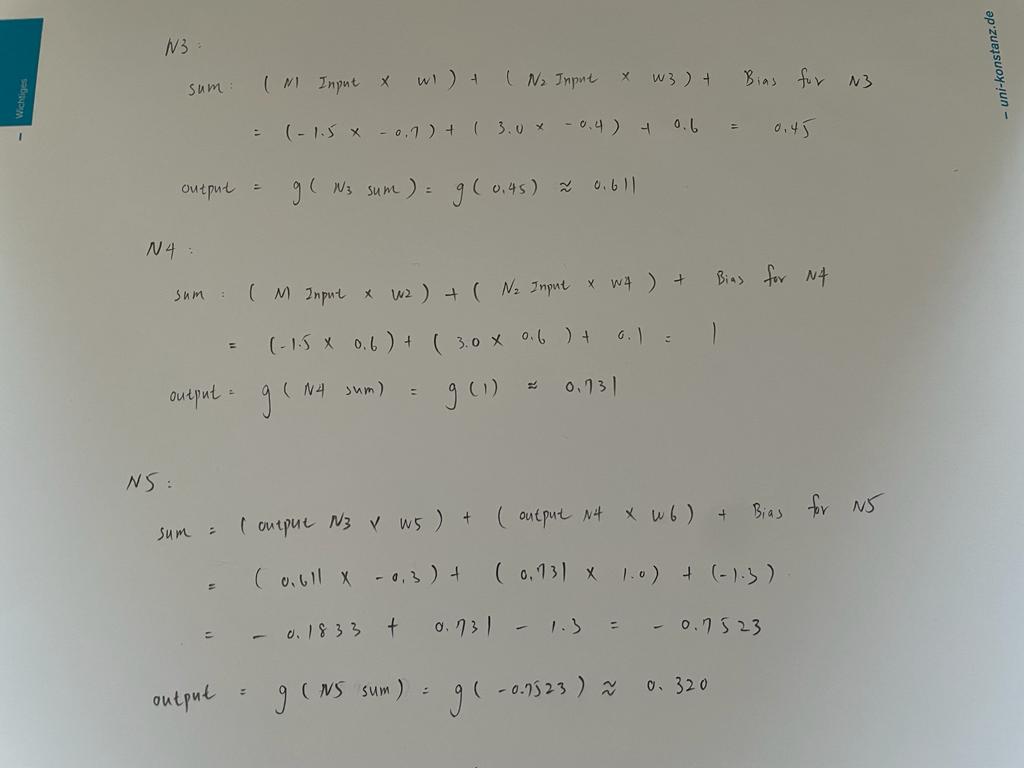 – Wichtiges
– uni-konstanz.de
N3 :
sum : ( N1 Input × W1 ) + ( N2 Input × W3 ) + Bias for N3
= ( -1.5 × -0.7 ) + ( 3.0 × -0.4 ) + 0.6 = 0.45
output = g ( N3 sum ) = g ( 0.45 ) ≈ 0.611
N4 :
sum : ( N1 Input × W2 ) + ( N2 Input × W4 ) + Bias for N4
= ( -1.5 × 0.6 ) + ( 3.0 × 0.6 ) + 0.1 = 1
output = g ( N4 sum ) = g ( 1 ) ≈ 0.731
N5 :
sum = ( output N3 × W5 ) + ( output N4 × W6 ) + Bias for N5
= ( 0.611 × -0.3 ) + ( 0.731 × 1.0 ) + ( -1.3 )
= - 0.1833 + 0.731 - 1.3 = - 0.7523
output = g ( N5 sum ) = g ( -0.7523 ) ≈ 0.320